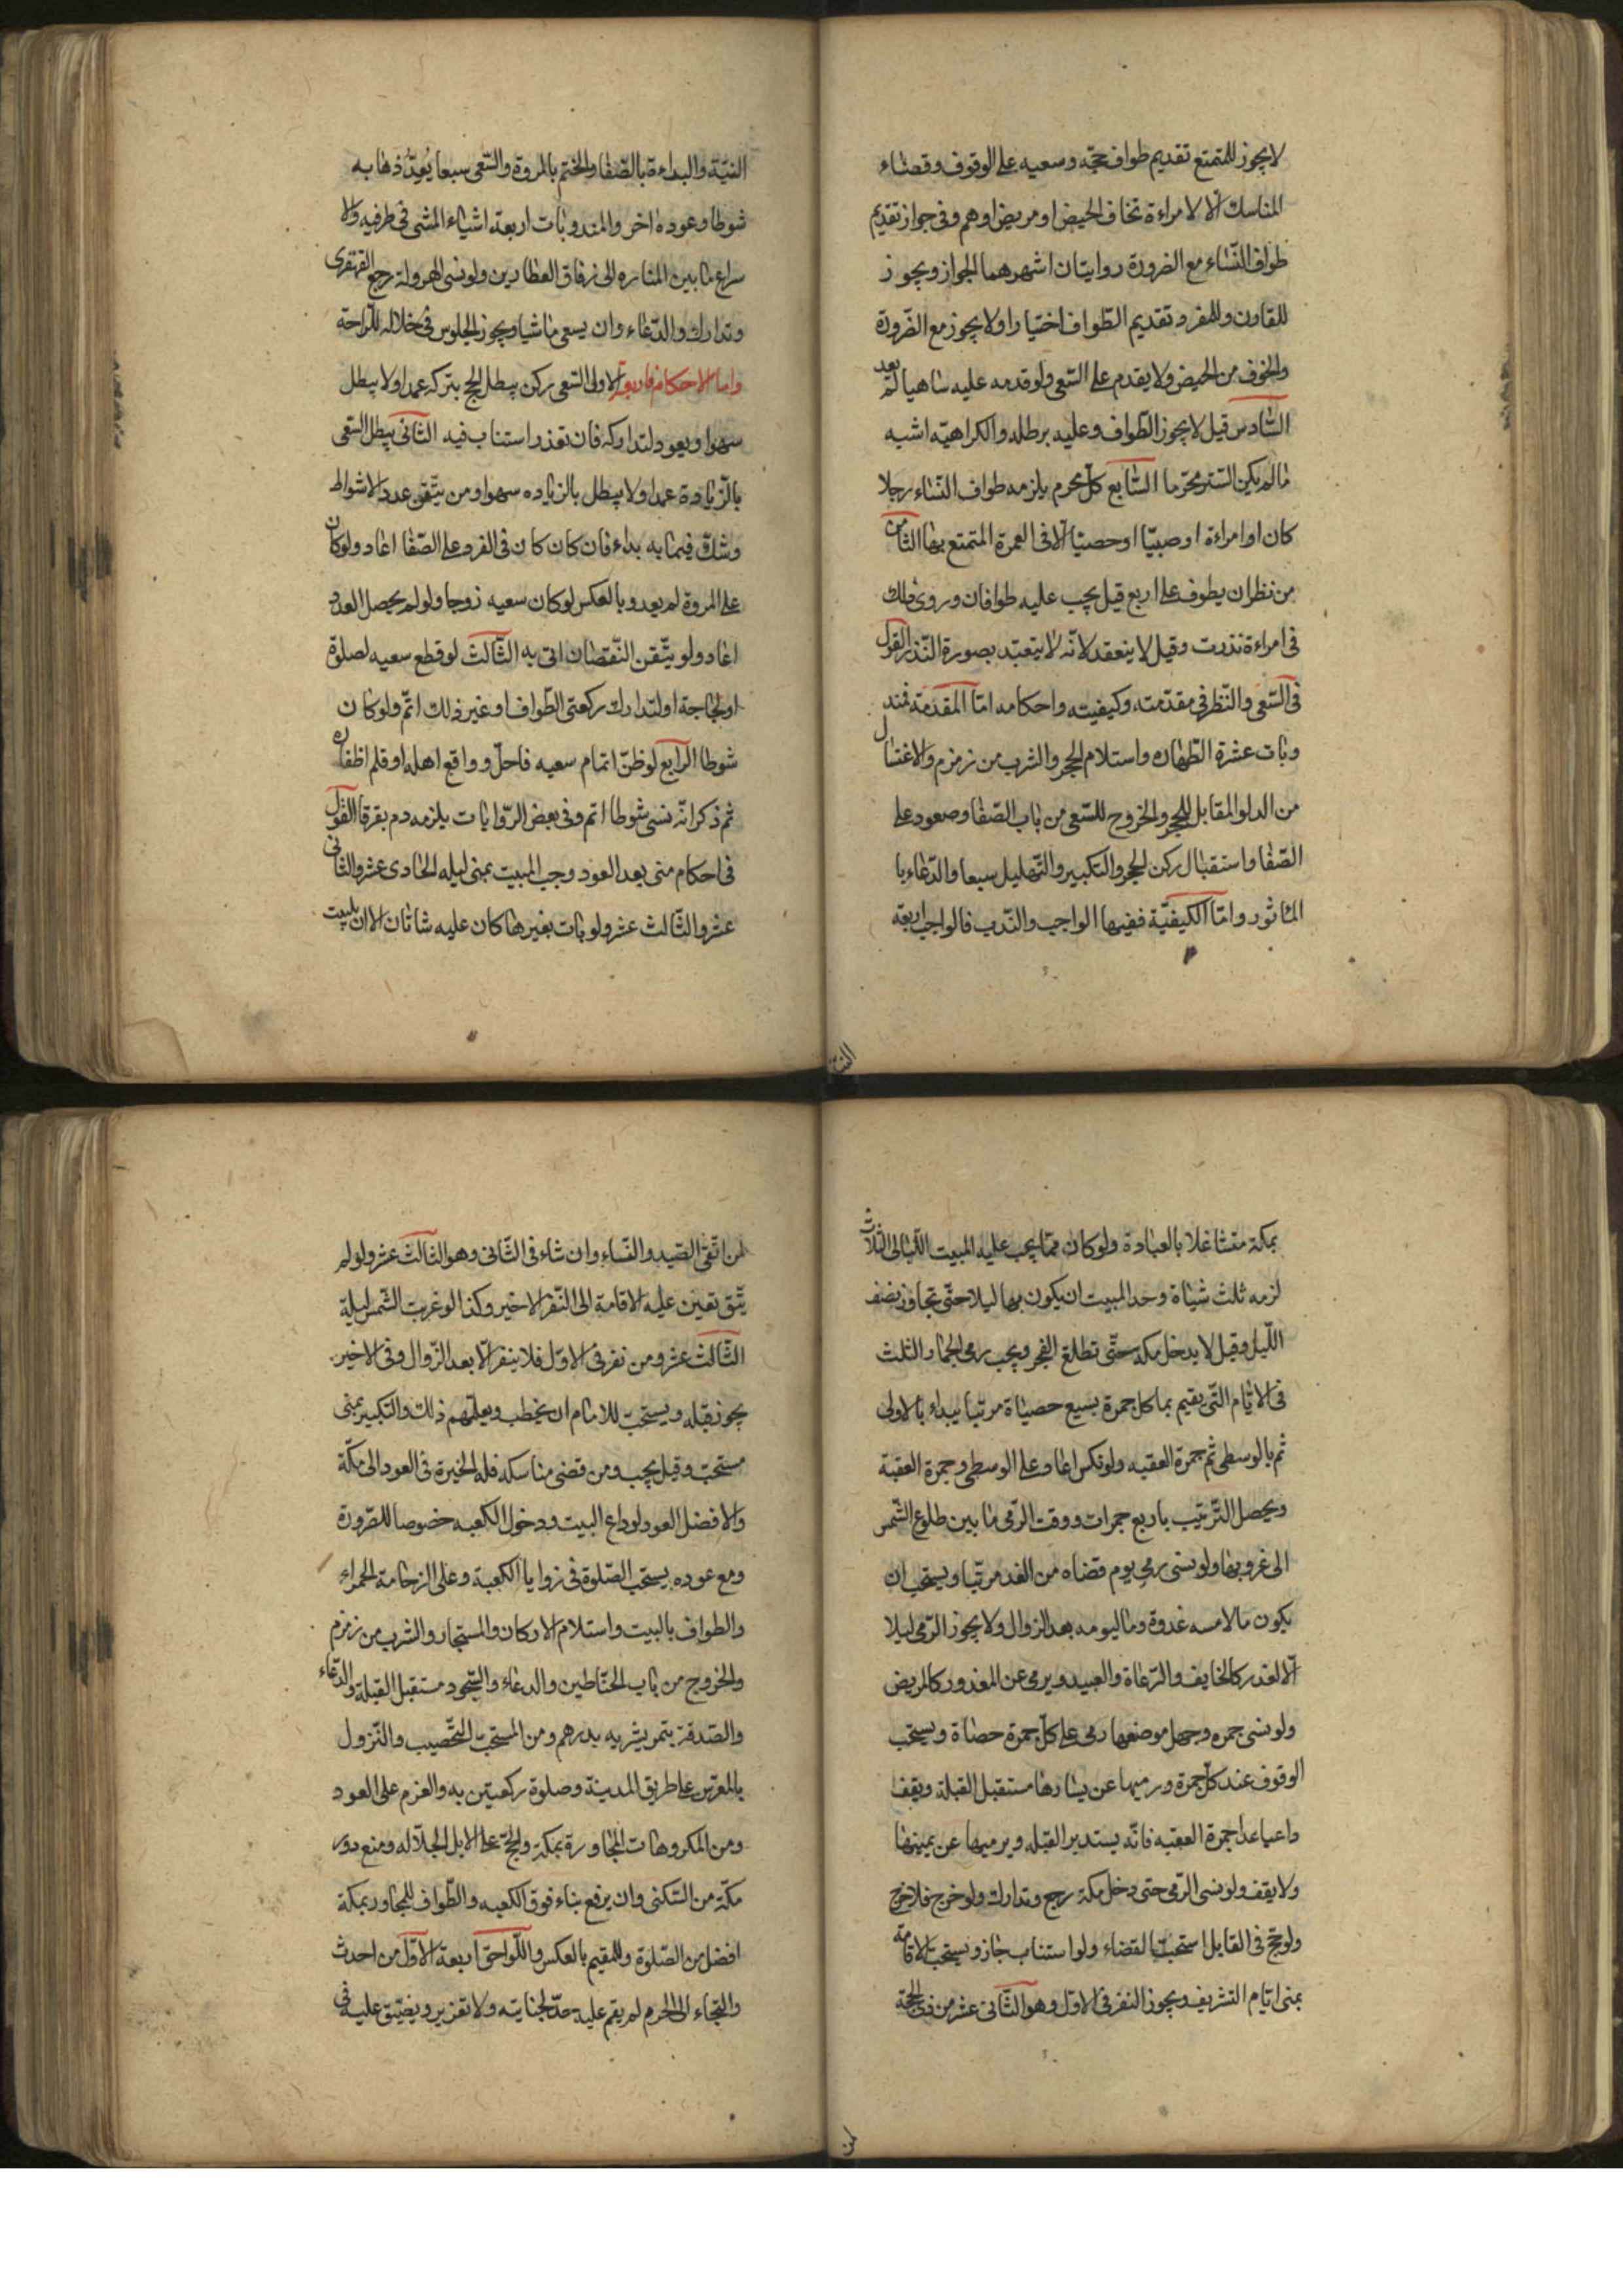 لا يجوز للمتمتع تقديم طواف حجّه وسعيه على الوقوف وقضاء
المناسك الا لامراءة تخاف الحيض او مريض او هم وفى جواز تقديم
طواف النّساء مع الضرورة روايتان اشهرهما الجواز ويجوز
للقارن وللمفرد تقديم الطّواف اختيارا ولا يجوز مع الضّرورة
والخوف من الحيض ولا يقدم على السّعى ولو قدمه عليه ساهيا لم يعد
السّادس قيل لا يجوز الطّواف وعليه برطله والكراهيّه اشبه
ما لم يكن السّتر محرّما السّابع كلّ محرم يلزمه طواف النّساء رجلا
كان او امراءة او صبيّا او خصيّا الّا فى العمرة المتمتع بها الثامن
من نظر ان يطوف على اربع قيل يجب عليه طوافان وروى ذلك
فى امراءة نذرت وقيل لا ينعقد لانّه لا يتعبّد بصورة النّذر القول
فى السّعى والنّظر فى مقدّمته وكيفيته واحكامه امّا المقدّمة فمند
وبات عشرة الطّهاره واستلام الحجر والشرب من زمزم والاغتسال
من الدلو المقابل للحجر والخروج للسّعى من باب الصّفا وصعود على
الصّفا واستقبال ركن الحجر والتكبير والتّهليل سبعا والدّعاء با
المائور وامّا الكيفيّة ففيها الواجب والنّدب فالواجب اربعة
النيّة
النيّة والبداءة بالصّفا والختم بالمروة والسّعى سبعا يُعدّ ذهابه
شوطا وعوده اخر والمندوبات اربعة اشياء المشى فى طرفيه والا
سراع ما بين المناره الى زقاق العطارين ولو نسى الهرولة رجع القهقرى
وتدارك والدّعاء وان يسعى ماشيا ويجوز الجلوس فى خلاله للرّاحة
واما الاحكام فاربعة الاولى السّعى ركن يبطل الحج بتركه عمدا ولا يبطل
سهوا ويعود لتداركه فان تعذر استناب فيه الثّانى يبطل السّعى
بالزّيادة عمدا ولا يبطل بالزياده سهوا ومن يتّقن عدد الاشواط
وشكّ فيما به بداء فان كان كان فى الفرد على الصّفا اعاد ولو كان
على المروة لم يعد وبالعكس لو كان سعيه زوجا ولو لم يحصل العدد
اعاد ولو يتّقن النّقصان اتى به الثّالث لو قطع سعيه لصلوة
او لحاجة او لتدارك ركعتى الطّواف او غير ذلك اتمّ ولو كان
شوطا الرابع لو ظنّ اتمام سعيه فاحلّ وواقع اهله او قلم اظفاره
ثم ذكر انّه نسى شوطا اتم وفى بعض الرّوايات يلزمه دم بقرة القول
فى احكام منى بعد العود وجب المبيت بمنى ليله الحادى عشر والثانى
عشر والثّالث عشر ولو بات بغيرها كان عليه شاتان الا ان يبيت
بمكة متشاغلا بالعبادة ولو كان ممّا يجب عليه المبيت اللّيالى الثلاث
لزمه ثلث شياة وحد المبيت ان يكون بها ليلا حتّى تجاوز نصف
اللّيل وقيل لا يدخل مكة حتّى تطلع الفجر ويجب رمى الجمار الثلث
فى الايّام التّى يقيم بها كل جمرة بسبع حصياة مرتبا يبداء بالاولى
ثم بالوسطى ثم جمرة العقبه ولو نكس اعاد على الوسطى وجمرة العقبة
ويحصل التّرتيب باربع جمرات ووقت الرّمى ما بين طلوع الشّمس
الى غروبها ولو نسى رمى يوم قضاه من الغد مرتّبا ويستحب ان
يكون ما لامسه غدوة وما ليومه بعد الزوال ولا يجوز الرّمى ليلا
الّا لعذر كالخايف والرّعاة والعبيد ويرمى عن المعذور كالمريض
ولو نسى جمره وجهل موضعها رمى على كلّ جمرة حصاة ويستحب
الوقوف عند كلّ جمرة ورميها عن يسارها مستقبل القبلة ويقف
داعيا عدا جمرة العقبه فانّه يستدبر القبله ويرميها عن يمينها
ولا يقف ولو نسى الرّمى حتى دخل مكة رجع وتدارك ولو خرج فلا حرج
ولو حج فى القابل استحبّ القضاء ولو استناب جاز ويستحب الاقامة
بمنى ايّام التشريف ويجوز النفر فى الاوّل وهو الثّانى عشر من ذى الحجة
لمن
لمن اتّقى الصّيد والنّساء وان شاء فى الثّانى وهو الثالث عشر ولو لم
يتّق تعين عليه الاقامة الى النّفر الاخير وكذا لو غربت الشّمس ليلة
الثّالث عشر ومن نفر فى الاوّل فلا ينفر الّا بعد الزّوال وفى الاخير
يجوز قبله ويستحبّ للامام ان يخطب ويعلّمهم ذلك والتكبير بمنى
مستحبّ وقيل يجب ومن قضى مناسكه فله الخيرة فى العود الى مكّة
والافضل العود لوداع البيت ودخول الكعبه خصوصا للصّرورة
ومع عوده يستحب الصّلوة فى زوايا الكعبة وعلى الرخامة الحمراء
والطواف بالبيت واستلام الاركان والمستجار والشرب من زمزم
والخروج من باب الحنّاطين والدعاء والسّجود مستقبل القبلة والدّعاء
والصّدقة بتمر يشريه بدرهم ومن المستحبّ التّحصيب والنّزول
بالمعرّس على طريق المدينة وصلوة ركعتين به والعزم على العود
ومن المكروهات المجاورة بمكة والحجّ على الابل الجلّاله ومنع دور
مكّة من السّكنى وان يرفع بناء فوق الكعبه والطّواف للمجاور بمكة
افضل من الصّلوة وللمقيم بالعكس واللّواحق اربعة الاوّل من احدث
والتجاء الى الحرم لم يقم عليه حدّ لجنايته ولا تعزير ويضيّق عليه فى